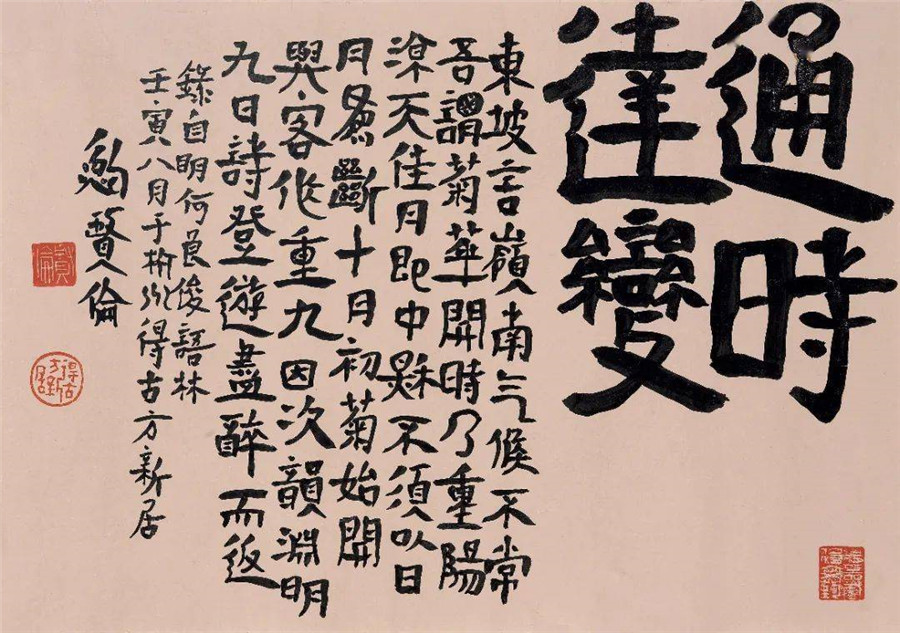 通時
達變
東坡言嶺南气候不常
吾謂菊華開時乃重陽
涼天佳月即中秋不須以日
月為斷十月初菊始開
與客作重九因次韻淵明
九日詩登遊盡醉而返
錄自明何良俊語林
壬寅八月于杭州得古方新居
鮑賢倫